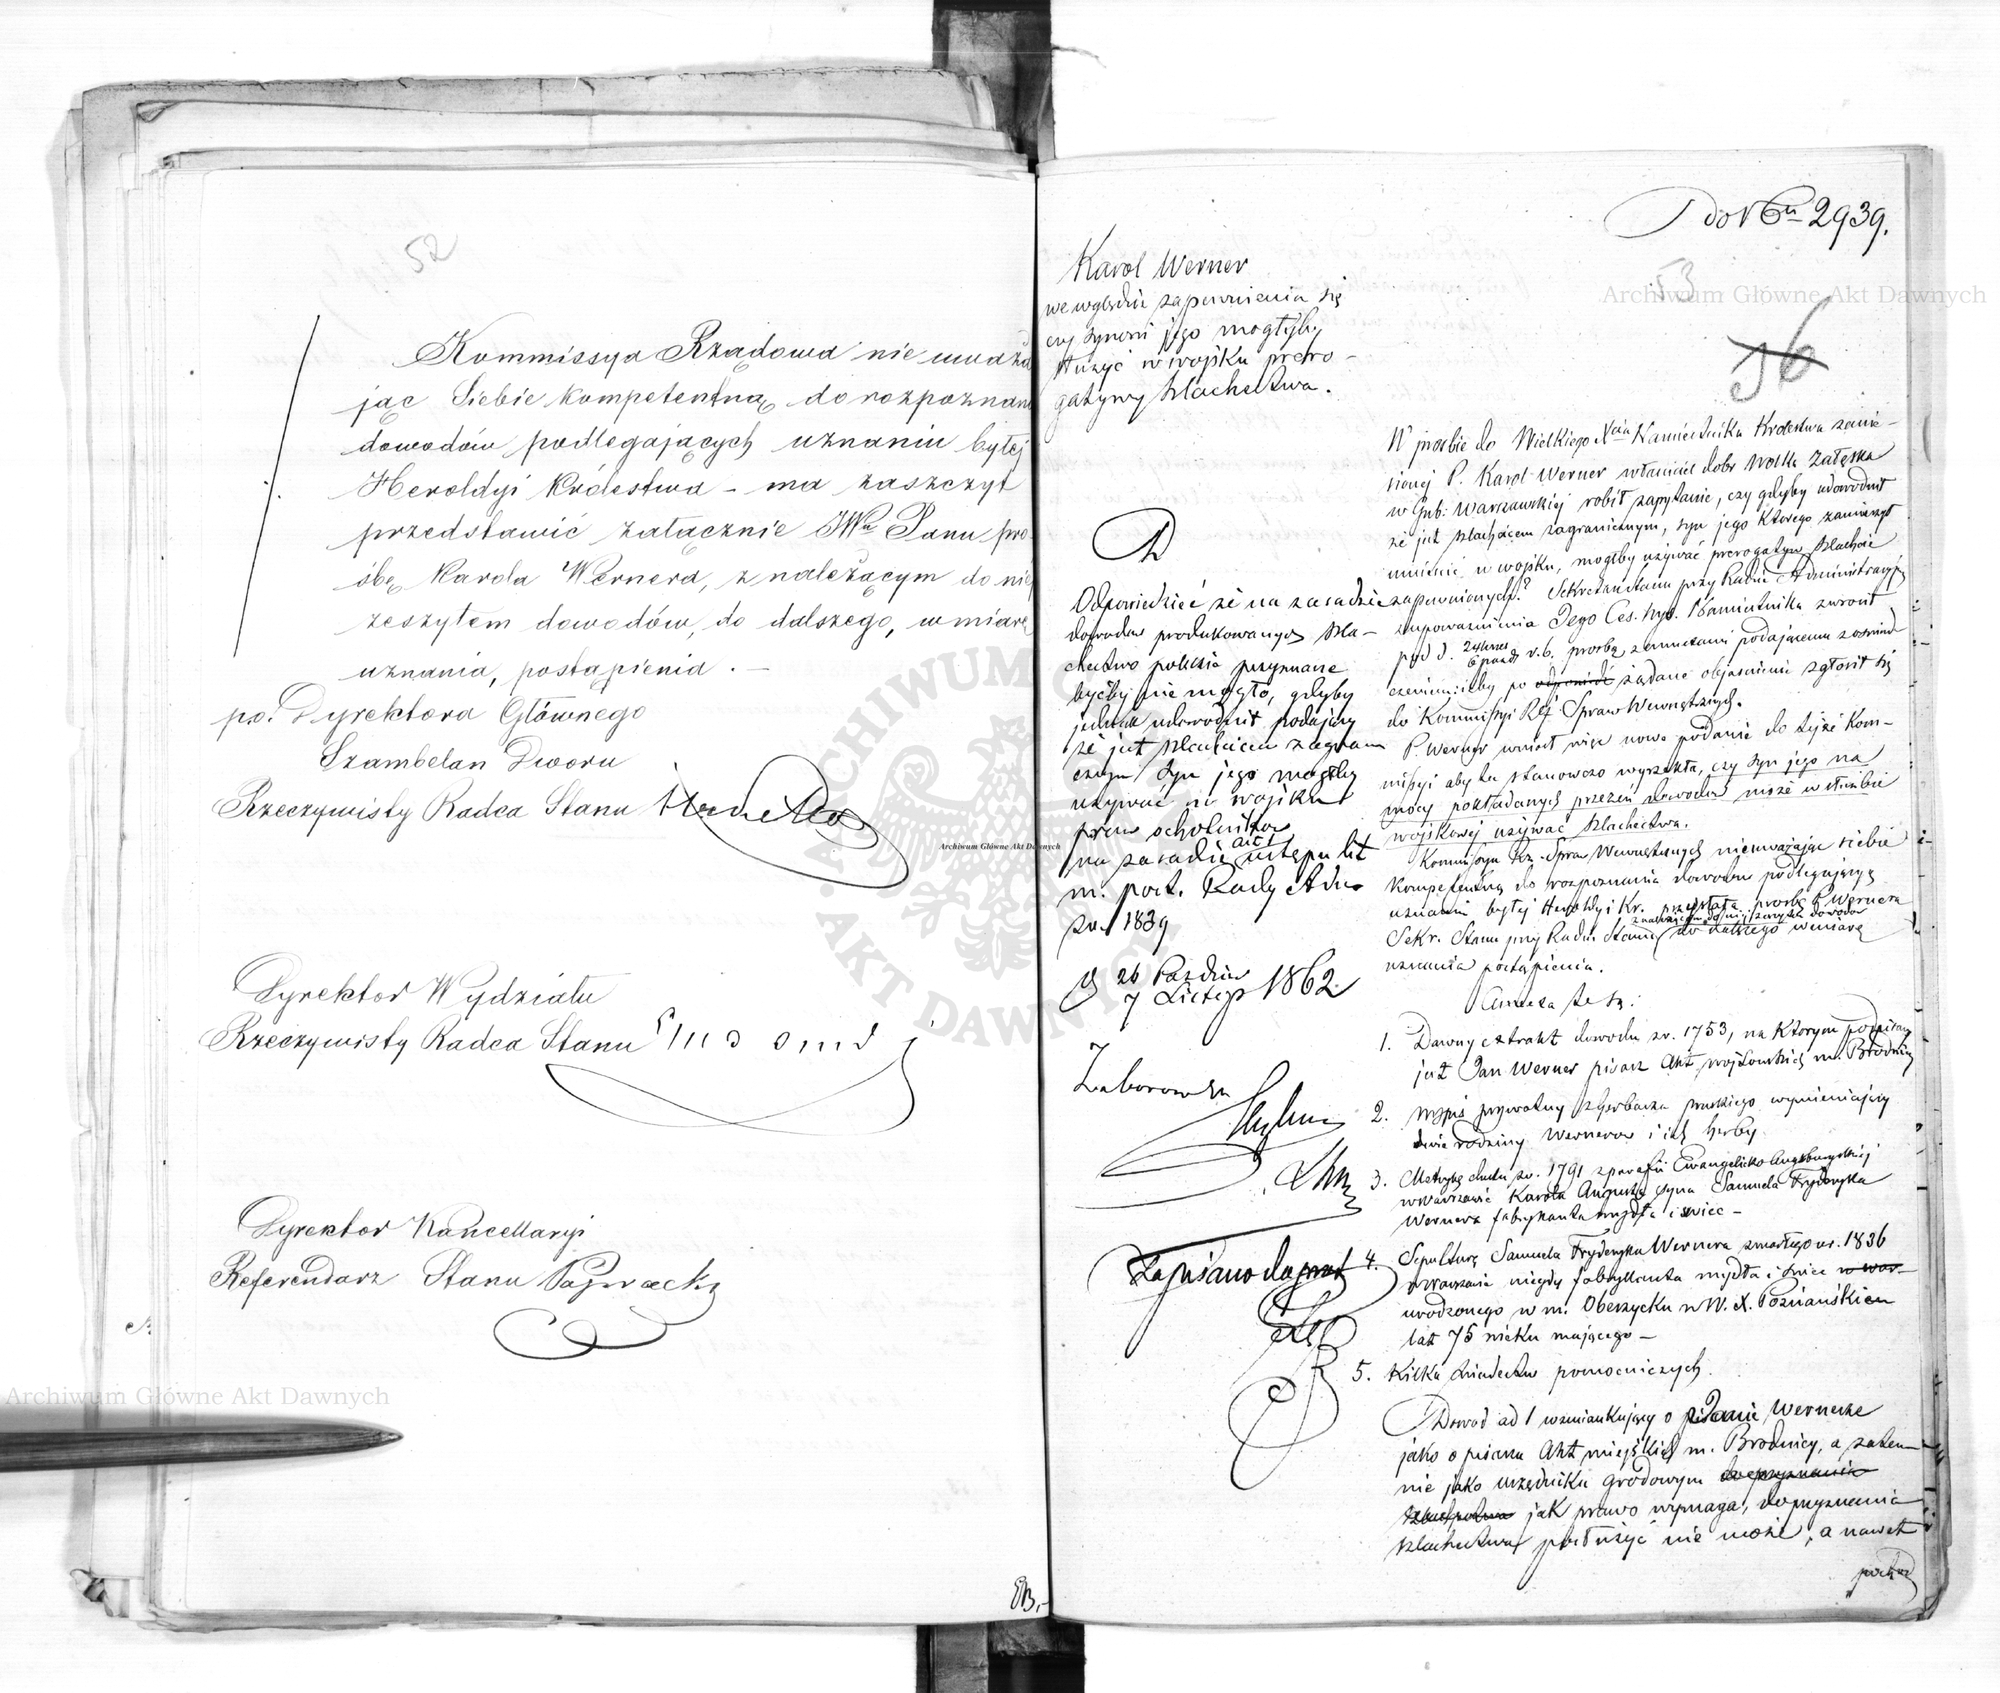 52
Kommissya Rządowa nie uważa
jąc Siebie kompetentną do rozpoznani
dowodów podlegających uznaniu byłej
Heroldyi Królestwa - ma zaszczyt
przedstawić załącznie JWu Panu pro
śbę Karola Wernera, z należącym do niej
zeszytem dowodów, do dalszego, w miarę
uznania, postąpienia. —
po. Dyrektora Głównego
Szambelan Dworu
Rzeczywisty Radca Stanu
Dyrektor Wydziału
Rzeczywisty Radca Stanu
Dyrektor Kancellaryi
Referendarz Stanu
Do N 2939.
53
56
Karol Werner
we względzie zapewnienia się
czy synowi jego mogłyby
służyć w wojsku prero-
gatywy szlachectwa.
Odpowiedzieć że na zasadzie
dowodów produkowanych szla-
chectwo polskie przyznane
byćby nie mogło, gdyby
jednak udowodnił podający
że jest szlachcicem zagrani
cznym syn jego mógłby
używać w wojsku
praw ochotników
na zasadzie art ustępu lit
m. post. Rady Adm
z r. 1839
d 26 Paździer
7 Listop 1862
Zaborowski
W prośbie do Wielkiego Xcia Namiestnika Królestwa zanie-
sionej P. Karol Werner właściciel dóbr Wolka Załęska
w Gub: Warszawskiej robił zapytanie, czy gdyby udowodnił
że jest szlachcicem zagranicznym, syn jego którego zamierzył
umieścić w wojsku, mógłby używać prerogatyw szlachcie
zapewnionych? Sekretarz Stanu przy Radzie Administracyj
z upoważnienia Jego Ces. Wys. Namiestnika zwrócił
pod d. 6 paźd r.b. prośbę z annexami podającemu z oświad
czeniem: iżby po żądane objaśnienie zgłosił się
do Kommissyi Rz Spraw Wewnętrznych.
P. Werner wniósł więc nowe podanie do tejże Kom-
missyi aby ta stanowczo wyrzekła, czy syn jego na
mocy pokładanych przezeń dowodów może w służbie
wojskowej używać szlachectwa.
Kommissya Rz. Spraw Wewnętrznych nieuważając siebie
kompetentną do rozpoznania dowodów podlegających
uznaniu byłej Heroldyi Kr. przesłała prośbę P. Wernera
z należącym do niej zeszytem dowodów
Sekr. Stanu przy Radzie Stanu do dalszego w miarę
uznania postąpienia.
Annexa te są:
1. Dawny extrakt dowodu z r. 1753, na którym podpisany
jest Jan Werner pisarz Akt wojtowskich m. Brodnicy
2. Wypis prywatny z herbarza pruskiego wymieniający
dwie rodziny Wernerów i ich herby
3. Metrykę chrztu z r. 1791 z parafii Ewangelicko Augsburgskiej
w Warszawie Karola Augusta syna Samuela Fryderyka
Wernera fabrykanta mydła i świec —
4. Sepulturę Samuela Fryderyka Wernera zmarłego w r. 1836
w Warszawie niegdy fabrykanta mydła i świec w War-
urodzonego w m. Obersycku w W. X. Poznańskiem
lat 75 wieku mającego —
5. Kilka świadectw pomocniczych.
Dowód ad 1 wzmiankujący o Janie Wernerze
jako o pisarzu Akt miejskich m. Brodnicy, a zatem
nie jako urzędniku grodowym do przyznania
szlachectwa jak prawo wymaga, do przyznania
szlachectwa posłużyć nie może, a nawet
Archiwum Główne Akt Dawnych
Archiwum Główne Akt Dawnych
Archiwum Główne Akt Dawnych